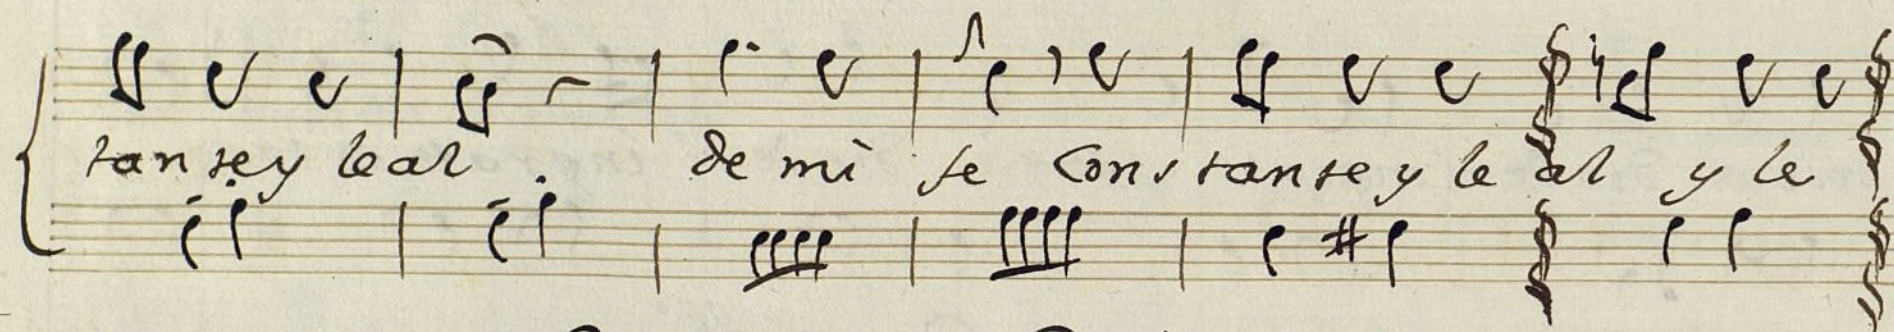 tan te y leal de mi fe Cons tan te y le al y le